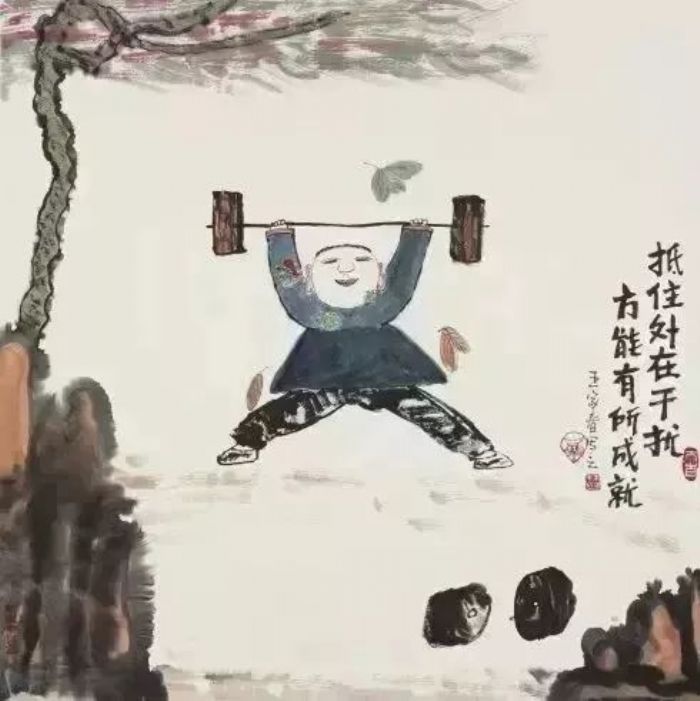 抵住处在干扰
方能有所成就
王家春写之